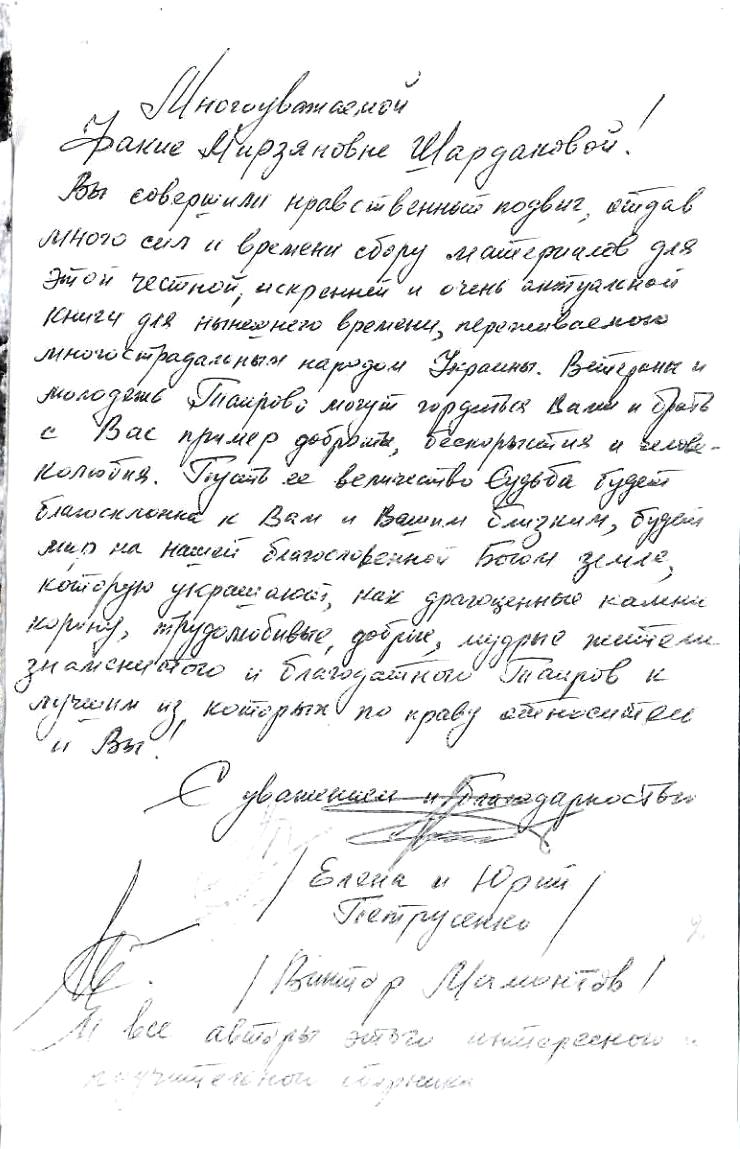 Многоуважаемой
Факие Мирзяновне Шардаковой!
Вы совершили нравственный подвиг, отдав
много сил и времени сбору материалов для
этой честной, искренней и очень актуальной
книги для нынешнего времени, переживаемого
многострадальным народом Украины. Ветераны и
молодежь Таирово могут гордиться Вами и брать
с Вас пример доброты, бескорыстия и челове-
колюбия. Пусть ее величество Судьба будет
благосклонна к Вам и Вашим близким, будет
мир на нашей благословенной Богом земле,
которую украшают, как драгоценные камни
корону, трудолюбивые, добрые, мудрые жители
знаменитого и благодатного Таиров к
лучшим из которых по праву относитесь
и Вы!
С уважением и благодарностью
/ Елена и Юрий
Петрусенко /
/ Виктор Мамонтов /
И все авторы этого интересного и
поучительного сборника